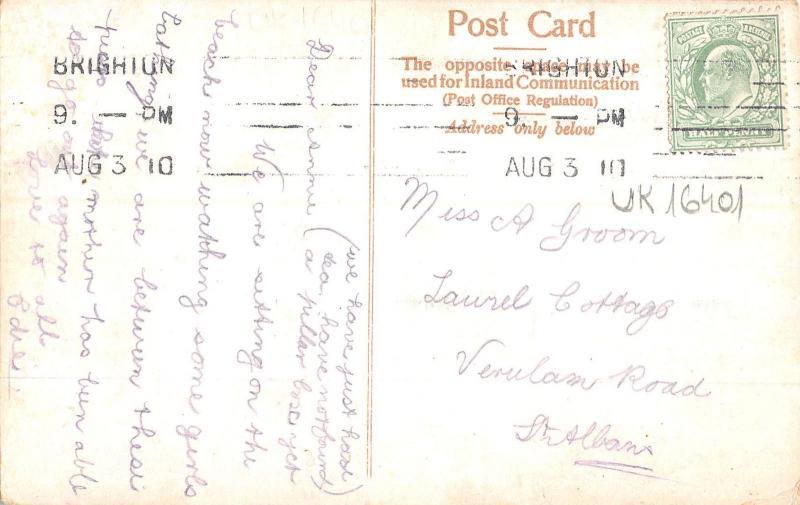 Post Card
The opposite space may be
used for Inland Communication
(Post Office Regulation)
Address only below
BRIGHTON
9. — PM
AUG 3 10
BRIGHTON
9. — PM
AUG 3 10
UK 16401
Miss A Groom
Laurel Cottage
Verulam Road
St Albans
(we have just had
tea, have not found)
(a pillar box yet
Dear Annie
We are sitting on the
beach now watching some girls
bathing we are between these
piers mother has been able
to go out again
Love to all
Edie